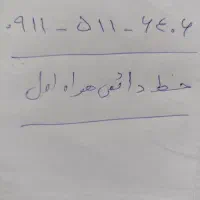 ۰۹۱۱ - ۵۱۱ - ۶۴۰۶
خط دائمی همراه اول